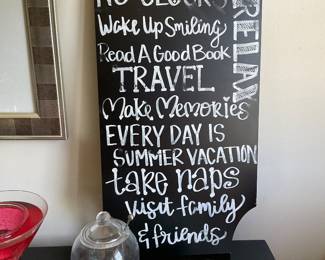 NO CLOCKS
Wake Up Smiling
Read A Good Book
TRAVEL
Make Memories
EVERY DAY IS
SUMMER VACATION
take naps
Visit family
& friends
RELAX